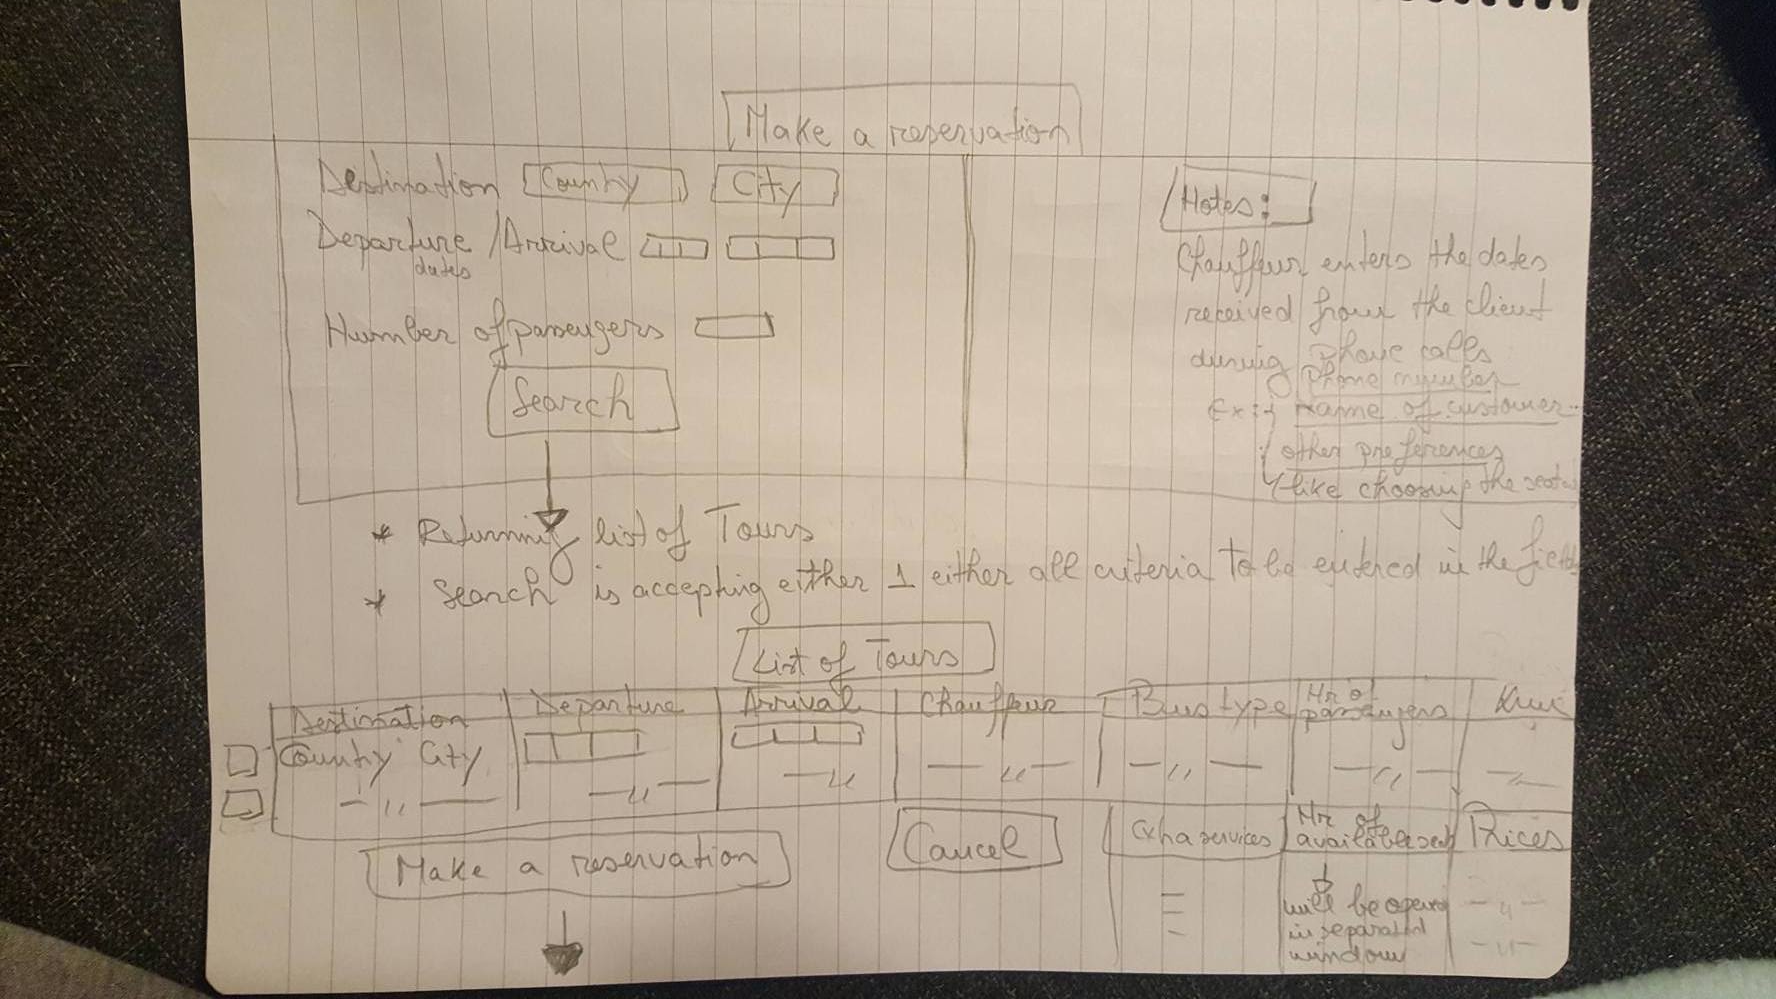 Make a reservation
Destination County City
Departure / Arrival
dates
Number of passengers
Search
Notes:
Chauffeur enters the dates
received from the client
during phone calls
phone number
Ex: name of customer
other preferences
like choosing the seats
* Returning list of Tours
* Search is accepting either 1 either all criteria to be entered in the fields
List of Tours
Destination Departure Arrival Chauffeur Bus type Nr of passengers
County City
Make a reservation Cancel
Extra services Nr. of available seat Prices
will be opened
in separated
window